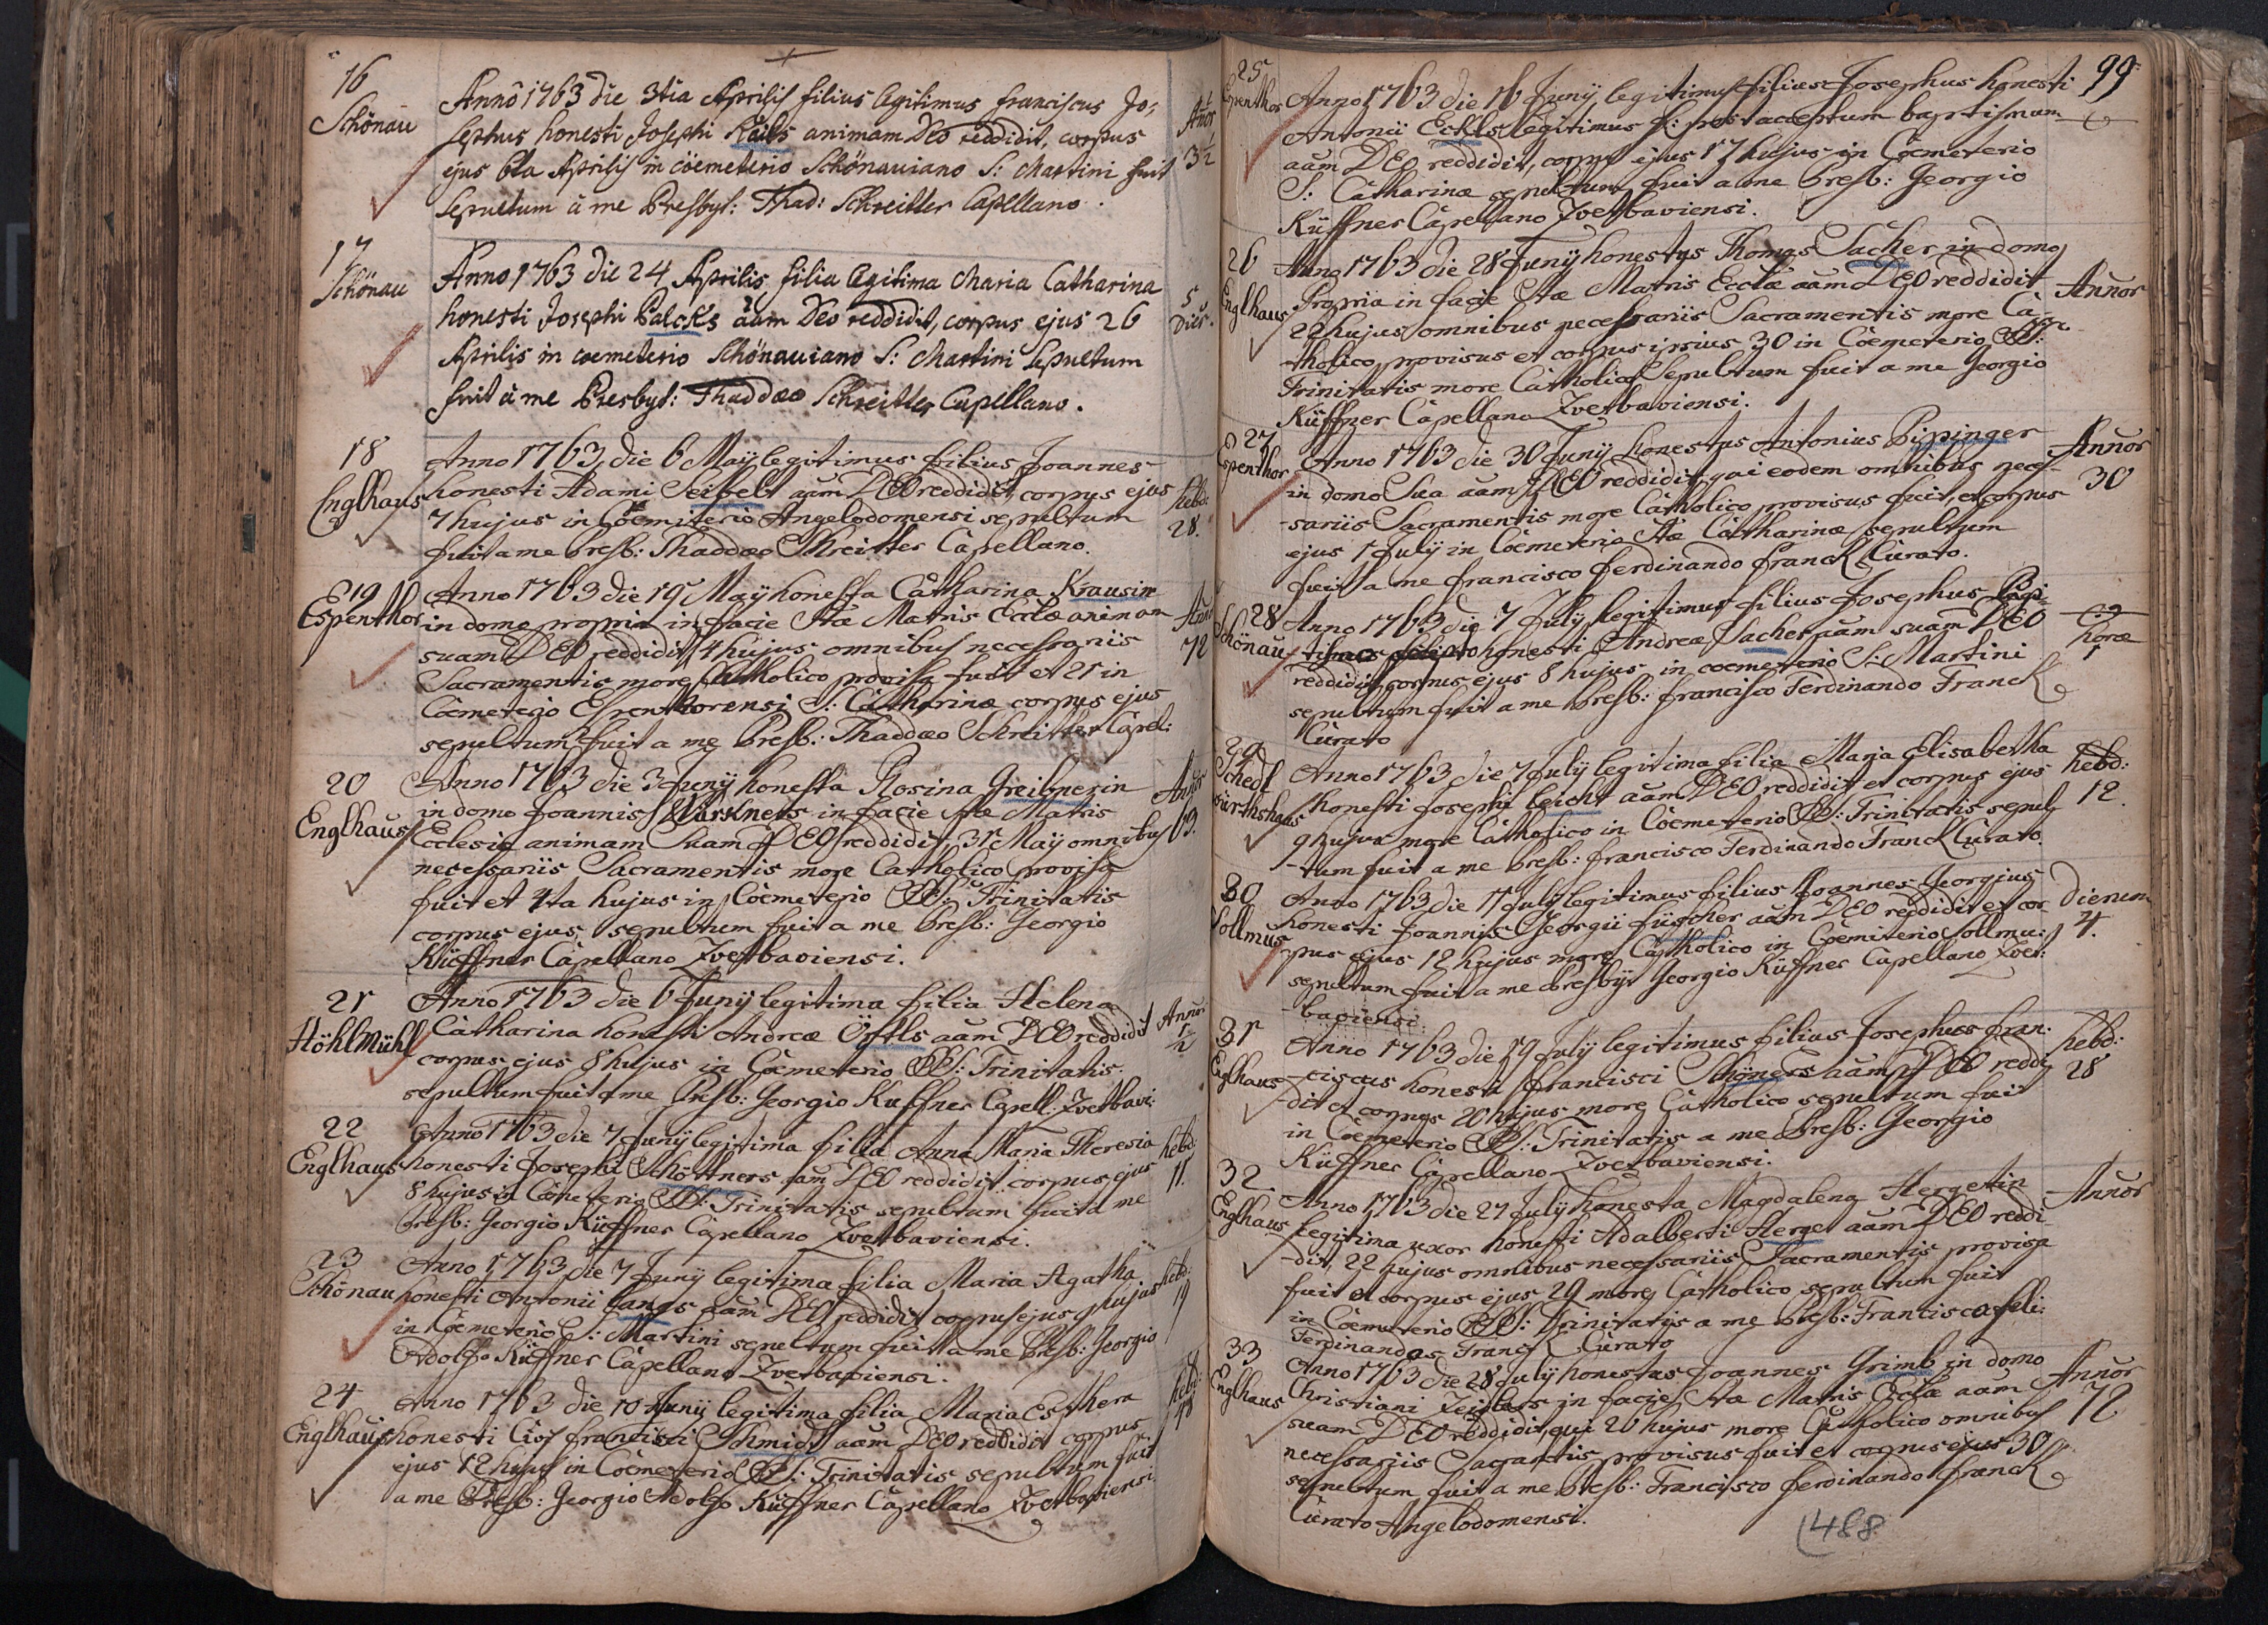 16
Schönau
Anno 1763 die 3tia Aprilis filius legitimus franciscus Jo-
sephus honesti Josephi Keils animam Deo reddidit, corpus
ejus 6ta Aprilis in coemeterio Schönauiano S: Martini fuit
sepultum à me Presbyt: Thad: Schreitter Capellano.
Anor
3 1/2
17
Schönau
Anno 1763 die 24 Aprilis filia legitima Maria Catharina
honesti Josephi Palcks aam Deo reddidit, corpus ejus 26
Aprilis in coemeterio Schönauiano S: Martini sepultum
fuit à me Presbyt: Thaddaeo Schreitter Capellano.
5
Dier.
18
Englhaus
Anno 1763 die 6 Maij legitimus filius Joannes
honesti Adami Seibelt aam DEO reddidit, corpus ejus
7 hujus in Coemiterio Angelodomensi sepultum
fuit a me Presb: Thaddaeo Schreitter Capellano.
hebd:
28.
19
Espenthor
Anno 1763 die 19 Maij honesta Catharina Krausin
in domo propria in facie Stae Matris Ecclae animam
suam DEO reddidit, 14 hujus omnibus necessariis
Sacramentis more Catholico provisa fuit et 21 in
Coemeterio Espenthorensi S: Catharinae corpus ejus
sepultum fuit a me Presb: Thaddaeo Schreitter Capel:
Anor
72
20
Englhaus
Anno 1763 die 3 Junij honesta Rosina Greibnerin
in domo Joannis Kürschners in facie Stae Matris
Eclesiae animam suam DEO reddidit, 31 Maij omnibus
necessariis Sacramentis more Catholico provisa
fuit et 4ta hujus in Coemeterio SS: Trinitatis
corpus ejus sepultum fuit a me Presb: Georgio
Küffner Capellano Zvetbaviensi.
Anor
63.
21
Höhlmühl
Anno 1763 die 6 Junij legitima filia Helena
Catharina honesti Andreae Örtls aam DEO reddidit
corpus ejus 8 hujus in Coemeterio SS: Trinitatis
sepultum fuit a me Presb: Georgio Kuffner Capell: Zvetbavi:
Anor
1/2
22
Englhaus
Anno 1763 die 7 Junij legitima filia Anna Maria Theresia
honesti Josephi Schöttners aam DEO reddidit corpus ejus
8 hujus in Coemeterio SS: Trinitatis sepultum fuit a me
Presb: Georgio Küffner Capellano Zvetbaviensi.
hebd:
11.
23
Schönau
Anno 1763 die 7 Junij legitima filia Maria Agatha
honesti Antonii langs aam DEO reddidit corpus ejus 9 hujus
in Coemeterio S: Martini sepultum fuit a me Presb: Georgio
Adolfo Küffner Capellano Zvetbaviensi.
hebd:
19
24
Englhaus
Anno 1763 die 10 Junij legitima filia Maria Esthera
honesti Civis francisci Schmidt aam DEO reddidit corpus
ejus 12 hujus in Coemeterio SS: Trinitatis sepultum fuit
a me Presb: Georgio Adolfo Küffner Capellano Zvetbaviensi.
hebd:
99
25
Espenthor
Anno 1763 die 16 Junij legitimus filius Josephus honesti
Antonii Eckls legitimus f: post acceptum baptismum
aam DEO reddidit, corpus ejus 17 hujus in Coemeterio
S: Catharinae sepultum fuit a me Presb: Georgio
Küffner Capellano Zvetbaviensi.
26
Englhaus
Anno 1763 die 28 Junij honestus Thomas Sacher in domo
Propria in facie Stae Matris Ecclae aam DEO reddidit
22 hujus omnibus necessariis Sacramentis more Ca-
-tholico provisus et corpus ipsius 30 in Coemeterio SS:
Trinitatis more Catholico sepultum fuit a me Georgio
Küffner Capellano Zvetbaviensi.
Anor
27
Espenthor
Anno 1763 die 30 Junij honestus Antonius Pippinger
in domo sua aam DEO reddidit, qui eodem omnibus neces-
-sariis Sacramentis more Catholico provisus fuit, et corpus
ejus 1 Julij in Coemeterio Stae Catharinae sepultum
fuit a me francisco ferdinando franck Curato.
Anor
30
28
Schönau
Anno 1763 die 7 Julij legitimus filius Josephus Bap-
tismo honesti Andreae Sacher aam suam DEO
reddidit, corpus ejus 8 hujus in coemeterio S: Martini
sepultum fuit a me Presb: francisco Ferdinando Franck
Curato
horae
1
29
Schedl
würthshaus
Anno 1763 die 7 Julij legitima filia Maria Elisabetha
honesti Josephi leicht aam DEO reddidit et corpus ejus
9 hujus more Catholico in Coemeterio SS: Trinitatis sepul-
-tum fuit a me Presb: francisco Ferdinando Franck Curato.
hebd:
12.
30
Sollmus
Anno 1763 die 11 Julij legitimus filius Joannes Georgius
honesti Joannis Georgii füscher aam DEO reddidit et cor-
-pus ejus 12 hujus more Catholico in Coemiterio Sollmu:
sepultum fuit a me Presbyt Georgio Küffner Capellano Zvet:
-baviensi.
dierum
4.
31
Englhaus
Anno 1763 die 19 Julij legitimus filius Josephus fran:
-ciscus honesti francisci Schöners aam DEO reddi-
-dit et corpus 20 hujus more Catholico sepultum fuit
in Coemeterio SS: Trinitatis a me Presb: Georgio
Küffner Capellano Zvetbaviensi.
hebd:
28
32
Englhaus
Anno 1763 die 27 Julij honesta Magdalena Hergetin
legitima uxor honesti Adalberti Herget aam DEO reddi-
-dit, 22 hujus omnibus necessariis Sacramentis provisa
fuit et corpus ejus 29 more Catholico sepultum fuit
in Coemeterio SS: Trinitatis a me Presb: Francisco
Ferdinando Franck Curato
Anor
33
Englhaus
Anno 1763 die 28 Julij honestus Joannes Grimb in domo
Christiani Zeidlers in facie Stae Matris Ecclae aam
suam DEO reddidit, qui 20 hujus more Catholico omnibus
necessariis Sacramentis provisus fuit et corpus ejus 30
sepultum fuit a me Presb: Francisco ferdinando franck
Curato Angelodomensi.
Anor
72
488